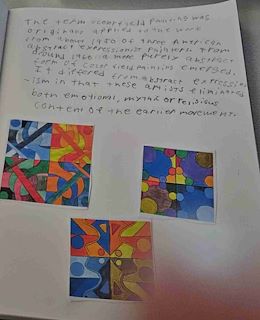 The term colorfield Painting was
originaly applied to the work
from about 1950 of three American
abstract expressionist Painters. From
around 1960 a more Purely abstract
form of Color field Painting emerged.
It differed from abstract express
-ism in that these artists eliminated
both emotional, mythic or religious
content of the earlier movement.